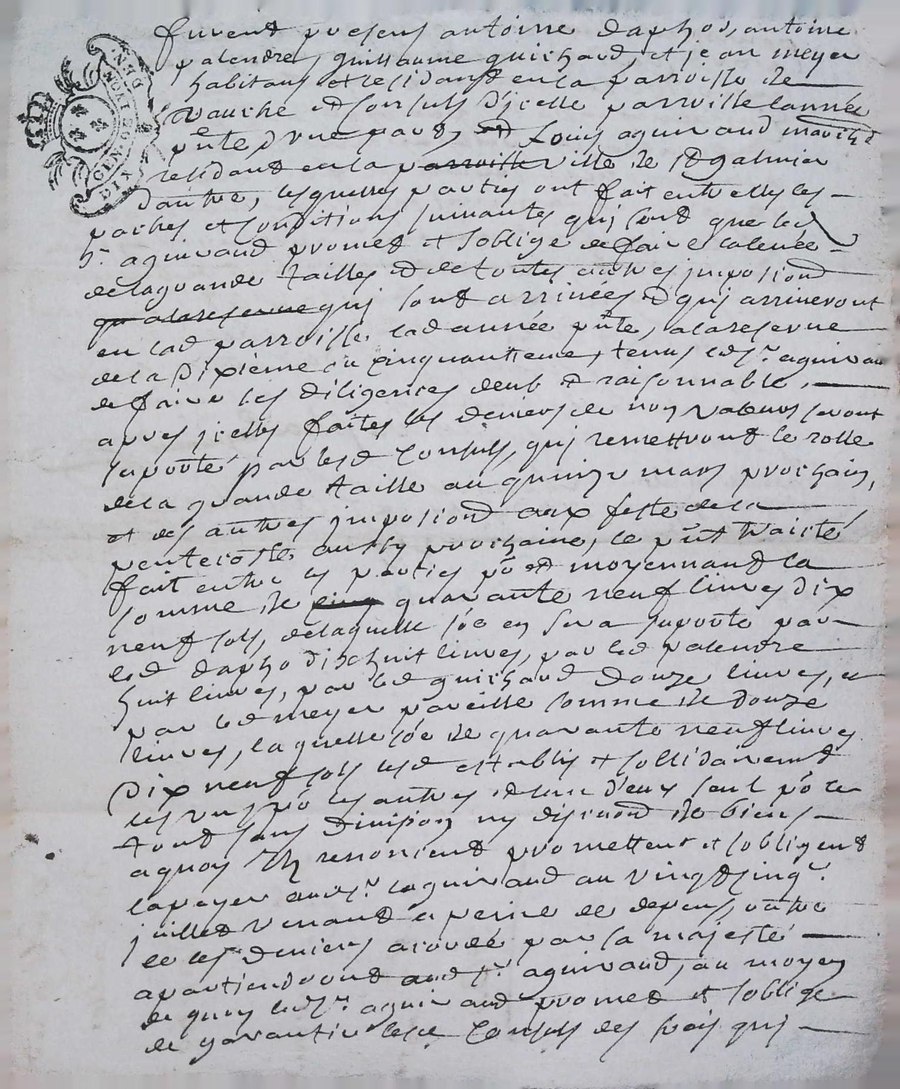 GEN. DE LION
DIX DEN.
furent presens antoine daphos, antoine
palendre, guillaume guichard, et jean meyer
habitans et residans en la parroisse de
et consuls d'icelle parroisse l'année
pnte, d'une part, et Louis aguiraud march.d
residant en la parroisse ville de st galmier
dautre, lesquelles parties ont fait entre elles les
paches et conditions suivantes qui sont que led
sr. aguiraud promet et soblige de faire la levée
de la grande tailles et de toutes autres imposions
qu a la reserve qui sont arrivées et qui arriveront
en lad parroisse lad année pnte, a la reserve
de la dixieme ou cinquantieme, tenus led sr. aguiraud
de faire les diligences deub et raisonnable,
apres icelles faites les deniers de non valeurs seront
suporté par lesd consuls, qui remettront le rolle
de la grande taille au quinze mars prochain,
et des autres imposions aux feste de la
pentecoste aussy prochaine, le pnt traicté
fait entre les parties po et moyennant la
somme de cinq quarante neuf livres dix
neuf sols, de laquelle soe en sera suporté par
led daphos dix huit livres, par led palendre
huit livres, par led guichard douze livres, et
par led meyer pareille somme de douze
livres, laquelle soe de quarante neuf livres
dix neuf sols lesd establis et sollidairement
les uns po les autres et un d'eux seul po le
tout sans division ny discution de biens
a quoy ils renoncent promettent et sobligent
la payer aud sr. aguiraud au vingt cinq
juillet venant a peine de depens, outre
ce les deniers acordé par sa majesté
apartiendront aud sr. aguiraud, au moyen
de quoy led sr. aguiraud promet et soblige
de garantir lesd consuls des frais qui